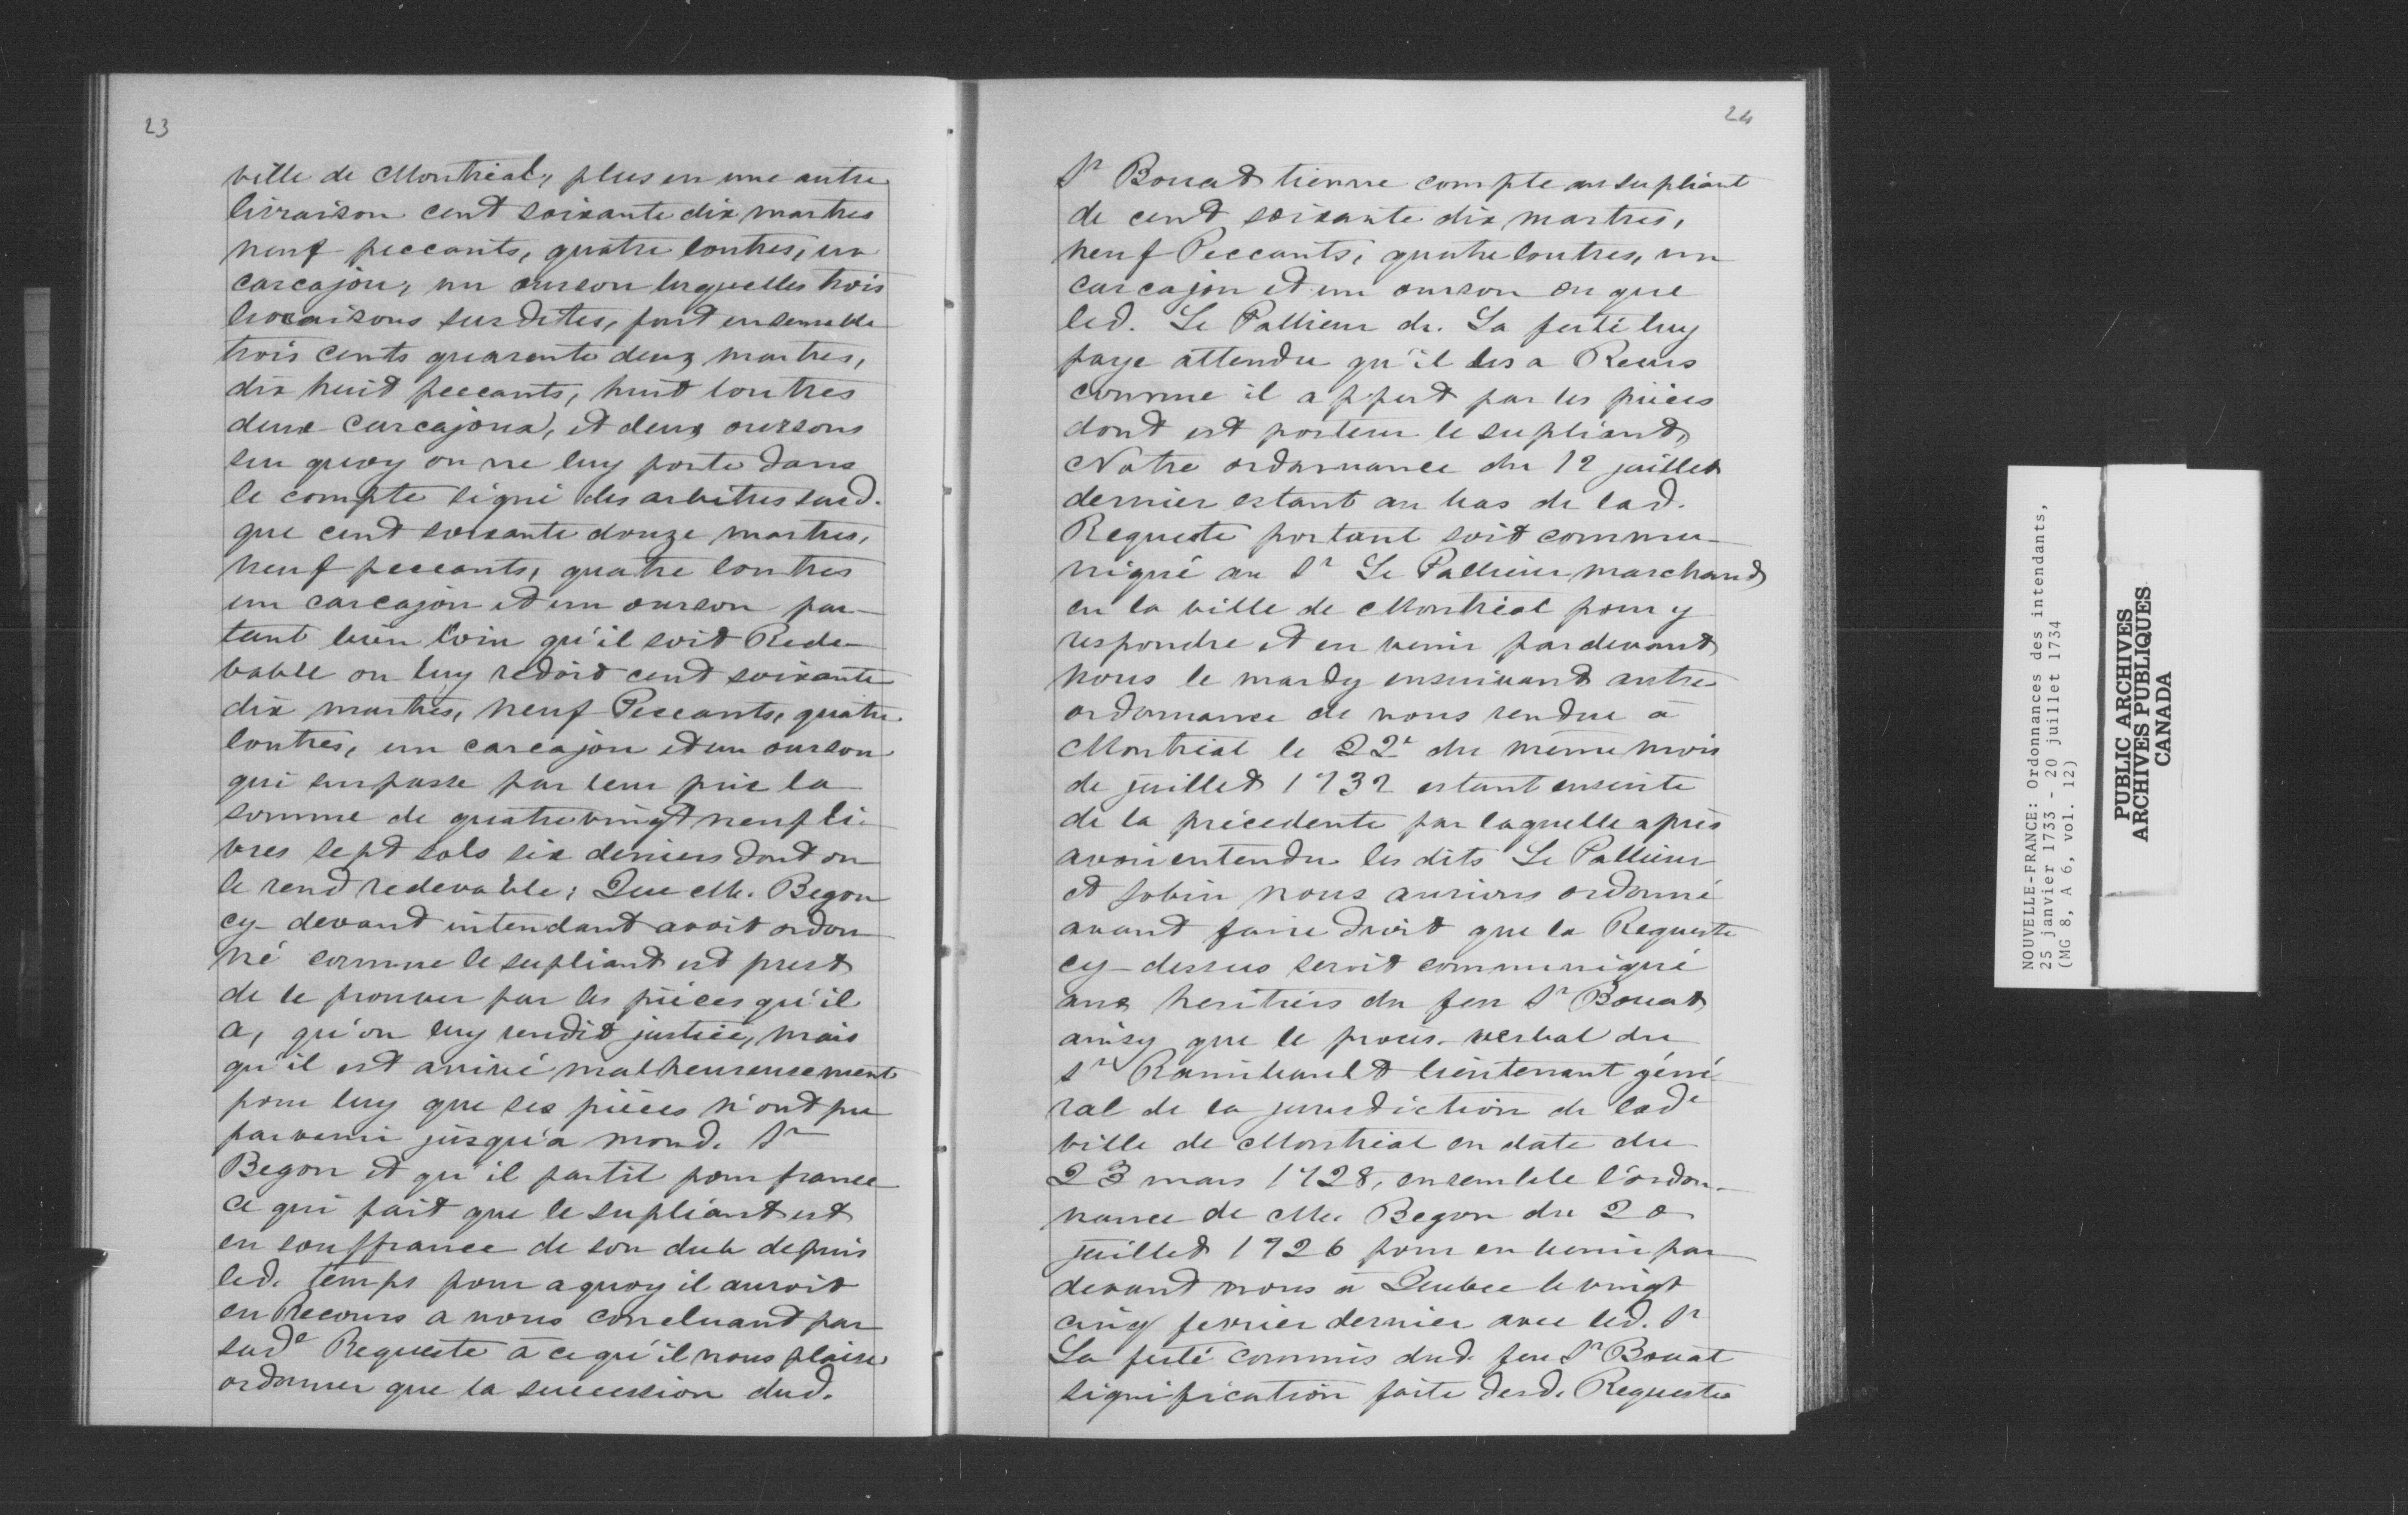 23
ville de Montréal, plus en une autre
livraison cent soixante dix martres
neuf peccants, quatre loutres, un
carcajou, un ourson lesquelles trois
livraisons susdites, font ensemble
trois cents quarante deux martres,
dix huit peccants, huit loutres
deux carcajoux, et deux oursons
sur quoy on ne luy porte dans
le compte signé des arbitres susd.
que cent soixante douze martres,
neuf peccants, quatre loutres
un carcajou et un ourson par-
tant bien loin qu'il soit Rede-
vable on luy redoit cent soixante
dix martres, neuf Peccants, quatre
loutres, un carcajou et un ourson
qui surpasse par leur prix la
somme de quatrevingt neuf li-
vres sept sols six deniers dont on
le rend redevable; Que M. Begon
cy-devant intendant avoit ordon
né comme le supliant est prest
de le prouver par les pièces qu'il
a, qu'on luy rendit justice, mais
qu'il est arrivé malheureusement
pour luy que ses pièces n'ont pu
parvenir jusqu'a mond. Sr
Begon et qu'il partit pour france
ce qui fait que le supliant est
en souffrance de son dub depuis
led. temps pour a quoy il auroit
eu Recours a nous concluant par
sade Requeste à ce qu'il nous plaise
ordonner que la succession dud.
24
Sr Bouat tienne compte au supliant
de cent soixante dix martres,
neuf Peccants, quatre loutres, un
carcajou et un ourson ou que
led. Le Pallieur de La ferté luy
paye attendu qu'il les a Reçus
comme il appert par les pièces
dont est porteur le supliant,
Notre ordonnance du 12 juillet
dernier estant au bas de lad.
Requeste portant soit commu-
niqué au Sr Le Pallieur marchand
en la ville de Montréal pour y
respondre et en venir pardevant
nous le mardy ensuivant autre
ordonnance de nous rendue à
Montréal le 22e du même mois
de juillet 1732 estant ensuite
de la précédente par laquelle après
avoir entendu les dits Le Pallieur
et Jobin nous aurions ordonné
avant faire droit que la Requeste
cy-dessus seroit communiqué
aux heritiers du feu Sr Bouat
ainsy que le procès-verbal du
Sr Raimbault lieutenant géné-
ral de la jurisdiction de lade
ville de Montréal en date du
23 mars 1728, ensemble l'ordon-
nance de M. Begon du 20
juillet 1726 pour en venir par
devant nous à Quebec le vingt
cinq fevrier dernier avec led. Sr
La ferté commis dud. feu Sr Bouat
signification faite desd. Requestes
NOUVELLE-FRANCE: Ordonnances des intendants,
25 janvier 1733 - 20 juillet 1734
(MG 8, A 6, vol. 12)
PUBLIC ARCHIVES
ARCHIVES PUBLIQUES
CANADA